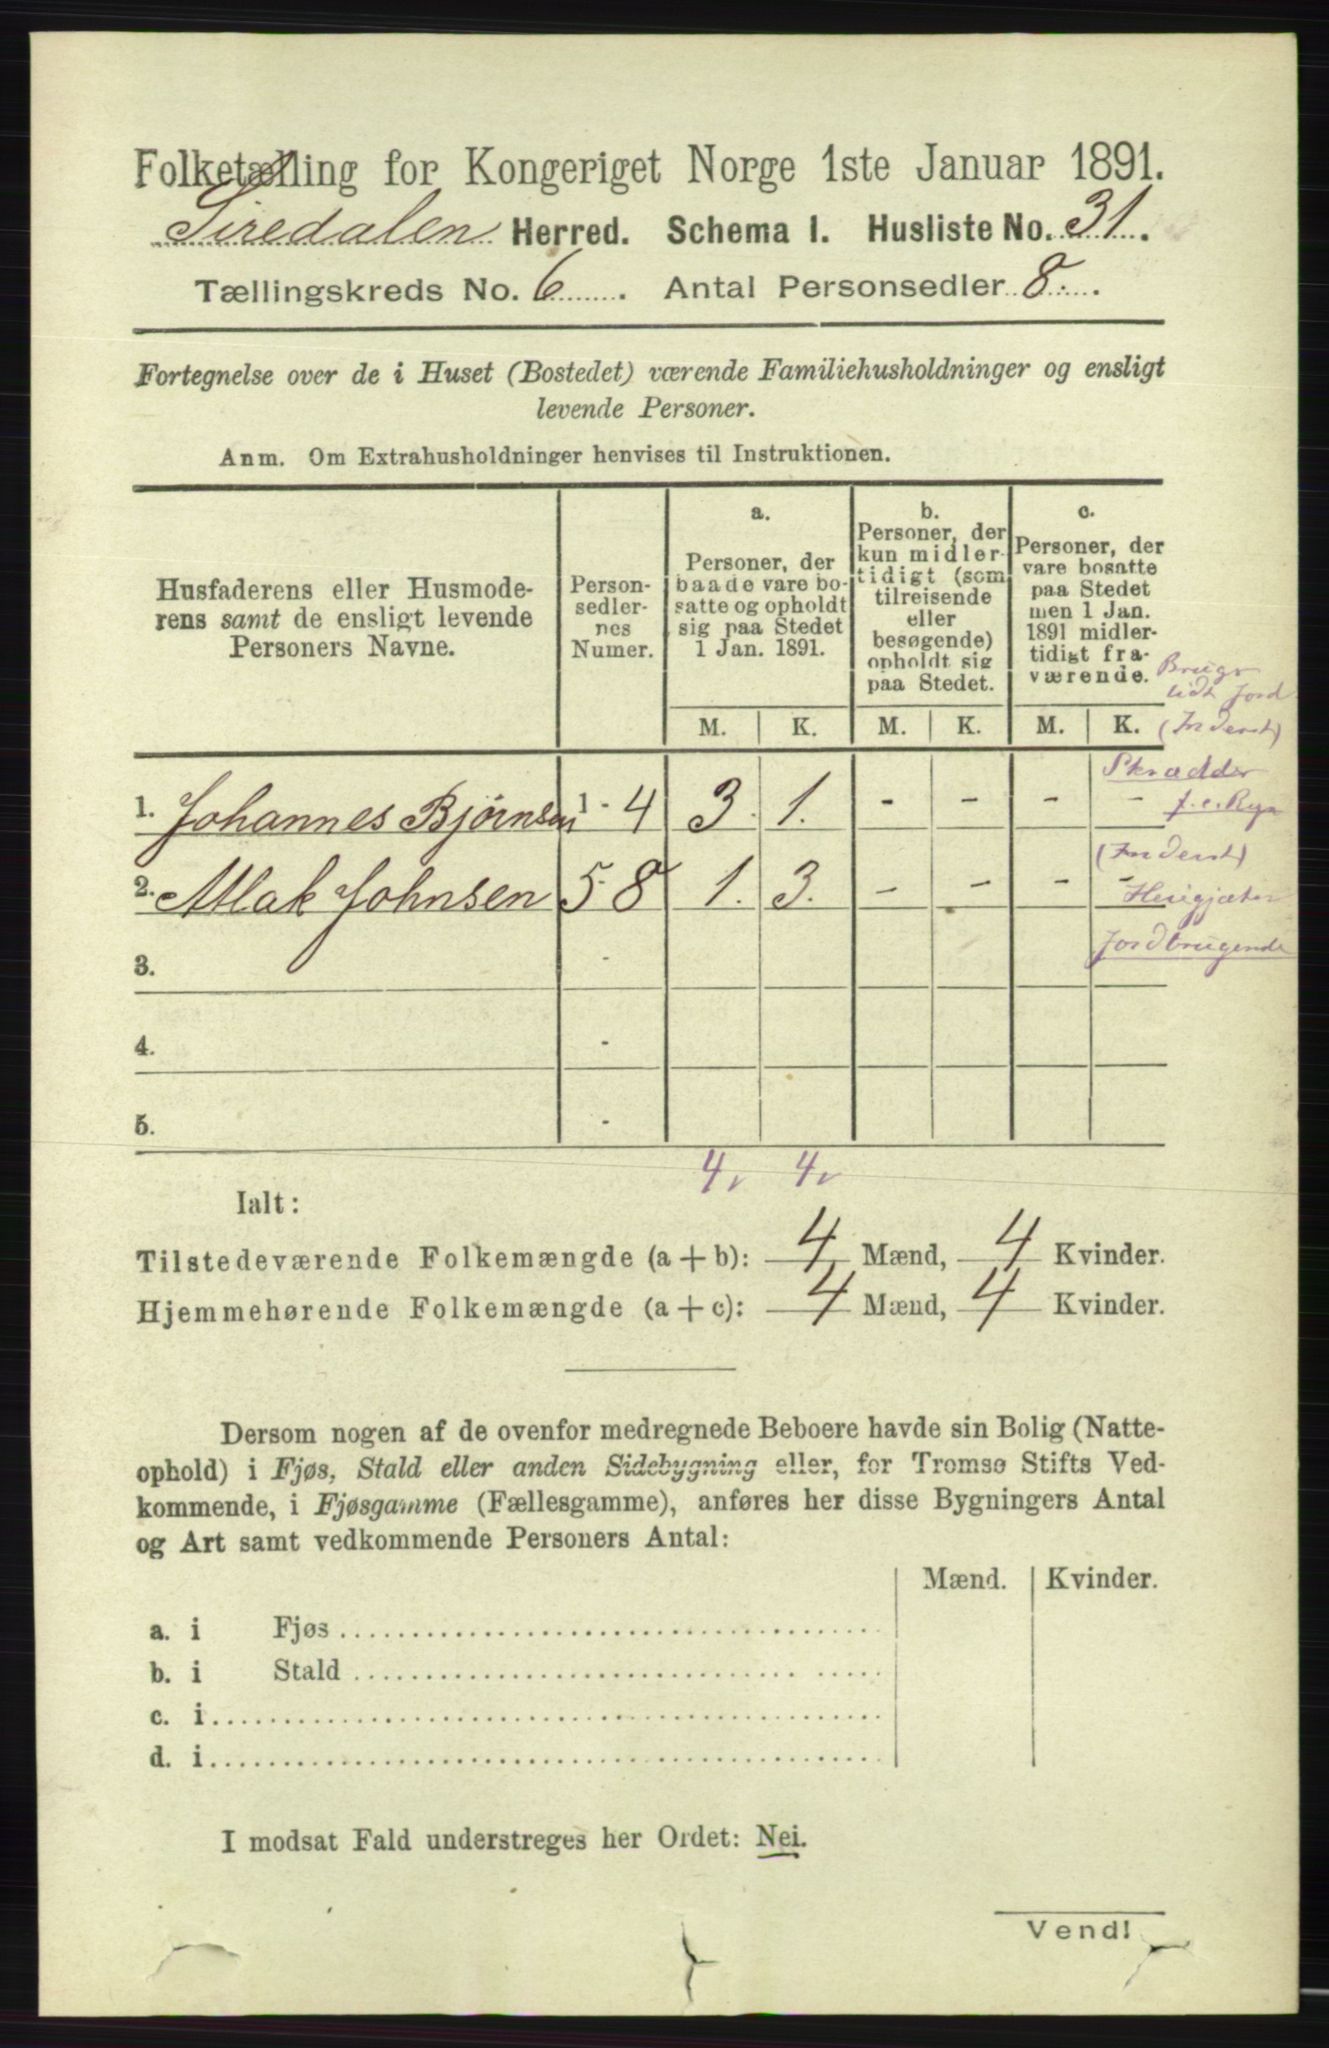 Folketælling for Kongeriget Norge 1ste Januar 1891.
Siredalen Herred. Schema I. Husliste No. 31.
Tællingskreds No. 6. Antal Personsedler 8.
Fortegnelse over de i Huset (Bostedet) værende Familiehusholdninger og ensligt
levende Personer.
Anm. Om Extrahusholdninger henvises til Instruktionen.
Husfaderens eller Husmode-
rens samt de ensligt levende
Personers Navne.
Person-
sedler-
nes
Numer.
a.
Personer, der
baade vare bo-
satte og opholdt
sig paa Stedet
1 Jan. 1891.
b.
Personer, der
kun midler-
tidigt (som
tilreisende
eller
besøgende)
opholdt sig
paa Stedet.
c.
Personer, der
vare bosatte
paa Stedet
men 1 Jan.
1891 midler-
tidigt fra-
værende.
Brugr
lidt Jord
(Inderst)
M. K. M. K. M. K.
Skrædder
1. Johannes Bjørnsen 1 - 4 3. 1. - - - - f. e. Regn
(Inderst)
2. Atlak Johnsen 5 - 8 1. 3. - - - -
Jordbrugende
3. -
4. -
5. -
4 4
Ialt:
Tilstedeværende Folkemængde (a + b): 4 Mænd, 4 Kvinder.
Hjemmehørende Folkemængde (a + c): 4 Mænd, 4 Kvinder.
Dersom nogen af de ovenfor medregnede Beboere havde sin Bolig (Natte-
ophold) i Fjøs, Stald eller anden Sidebygning eller, for Tromsø Stifts Ved-
kommende, i Fjøsgamme (Fællesgamme), anføres her disse Bygningers Antal
og Art samt vedkommende Personers Antal:
Mænd. Kvinder.
a. i Fjøs
b. i Stald
c. i
d. i
I modsat Fald understreges her Ordet: Nei.
Vend!